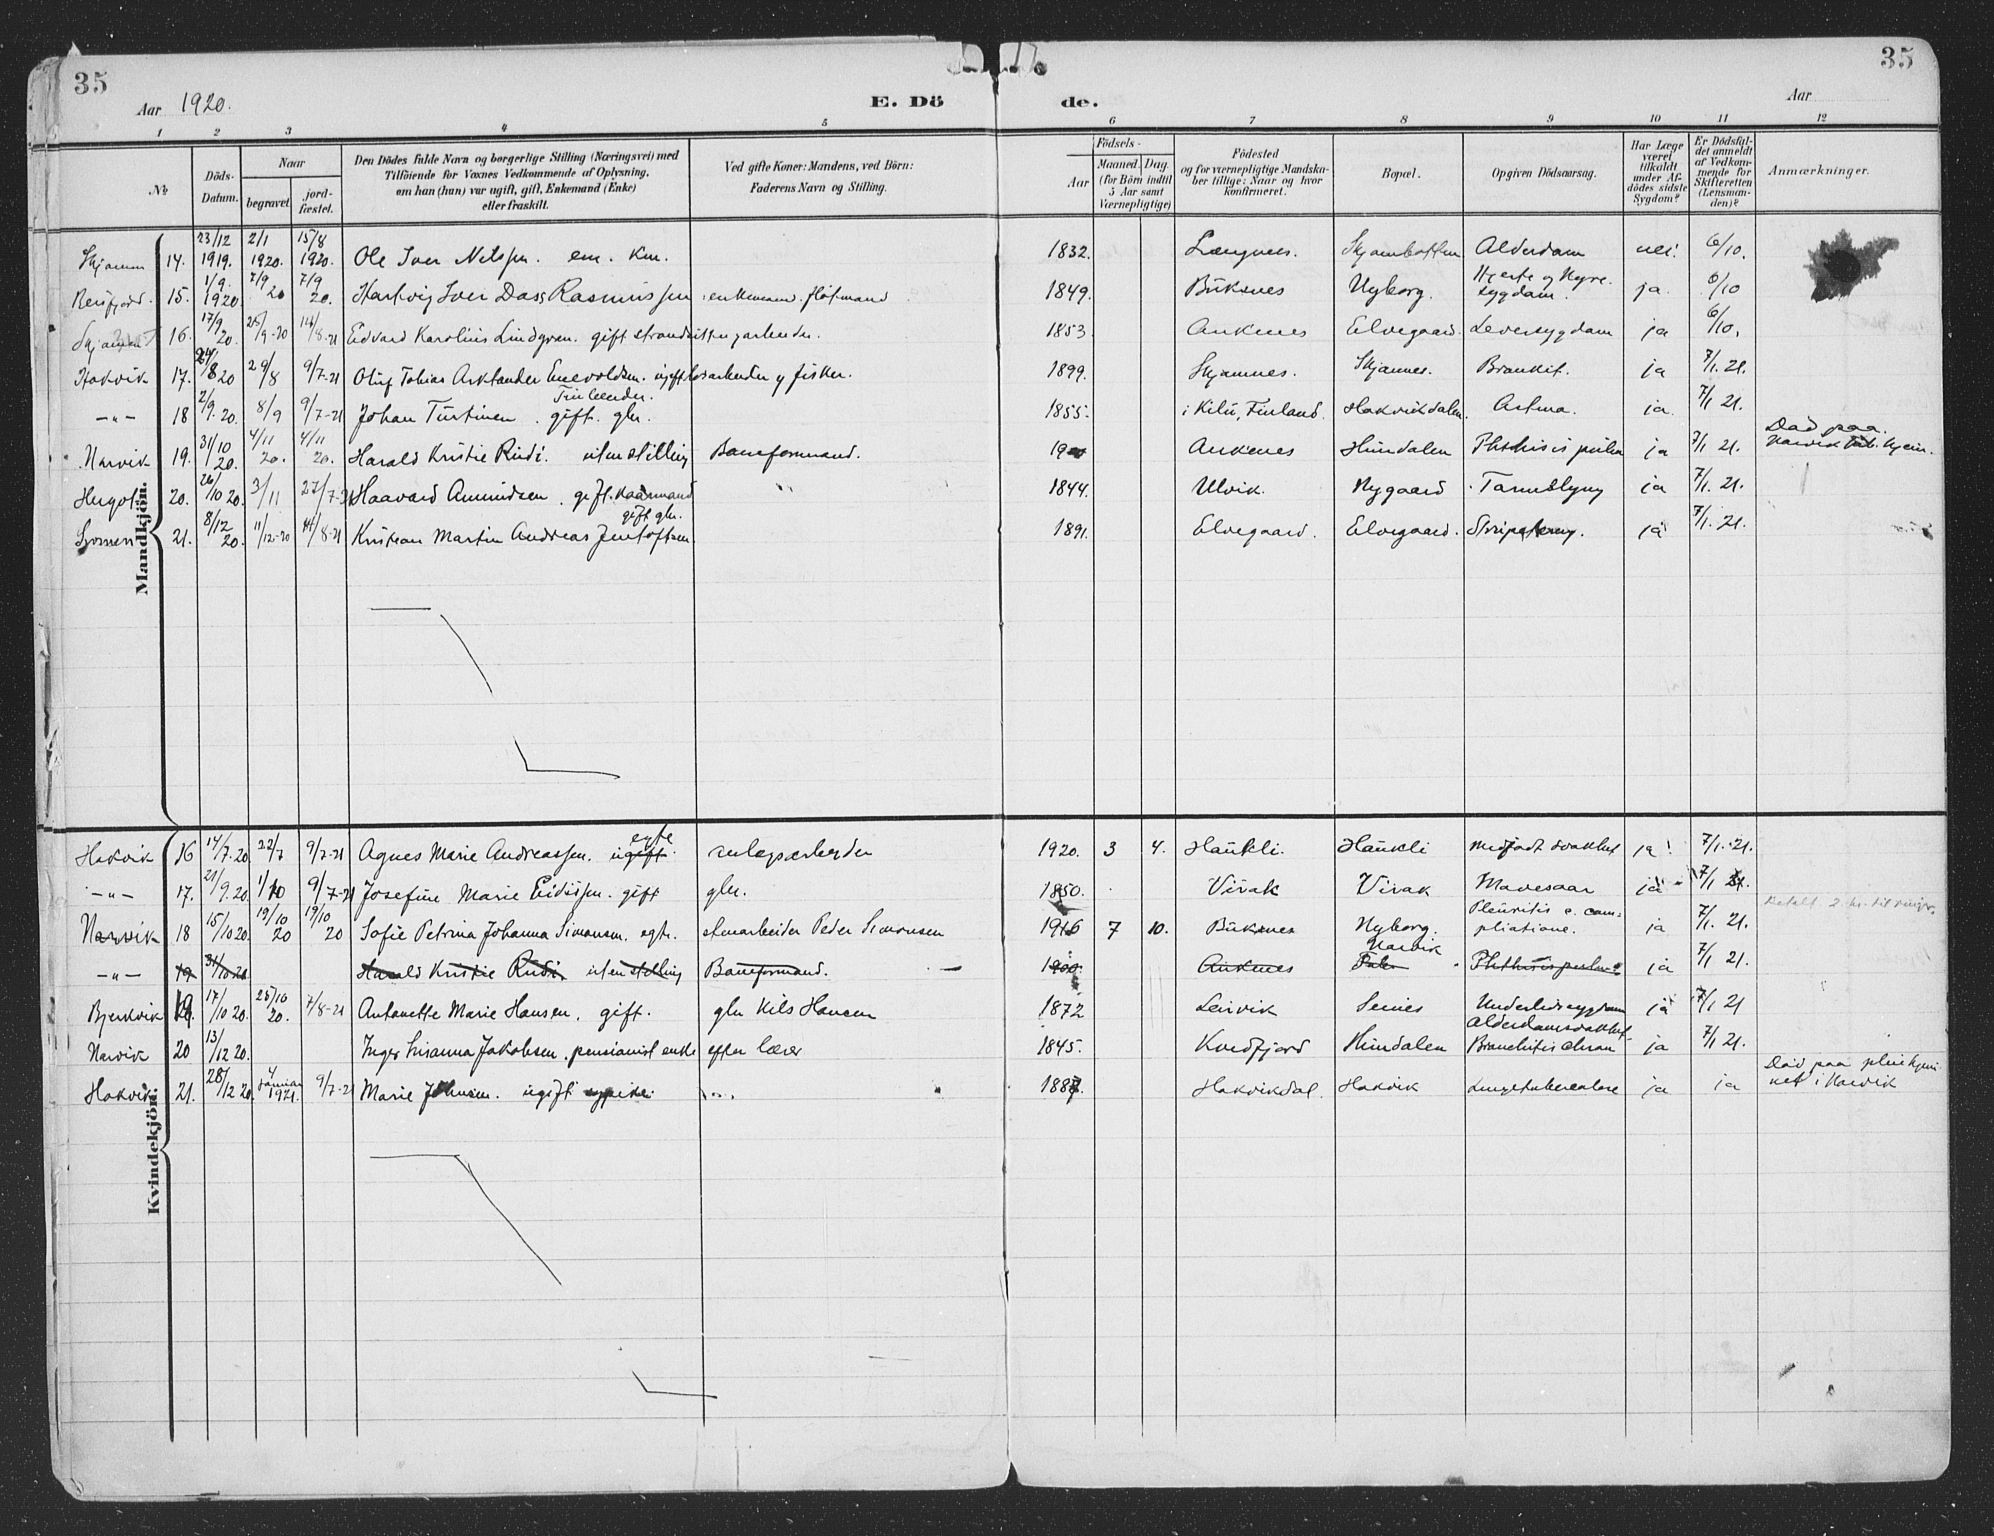 35
35
Aar 1920.
E. Dö
de.
Aar
1 2 3 4 5 6 7 8 9 10 11 12
№
Döds-Datum.
Naar
begravet.
jord-fæstet.
Den Dödes fulde Navn og borgerlige Stilling (Næringsvei) med
Tilföiende for Voxnes Vedkommende af Oplysning,
om han (hun) var ugift, gift, Enkemand (Enke)
eller fraskilt.
Ved gifte Koner: Mandens, ved Börn:
Faderens Navn og Stilling.
Födsels-
Aar
Maaned Dag
(for Börn indtil
5 Aar samt
Værnepligtige)
Födested
og for værnepligtige Mandska-
ber tillige: Naar og hvor
konfirmeret.
Bopæl.
Opgiven Dödsaarsag.
Har Læge
været
tilkaldt
under Af-
dödes sidste
Sygdom?
Er Dödsfal-
det anmeldt
af Vedkom-
mende for
Skifteretten
(Lensman-
den)?
Anmærkninger.
Mandkjön.
14. 23/12 1919. 2/1 1920. 15/8 1920. Ole Iver Nilssen. em. Km. 1832. Længnes. Skjombotten Alderdom nei. 6/10.
15. 1/9. 1920 7/9 20 7/9 20. Hartvig Iver Dass Rasmussen enkemand. 1849. Buksnes Nyborg. Hjerte og Nyre. sygdom. ja. 6/10
16. 17/9 20. 25/9-20 14/8-21 Edvard Karolius Lindgren. gift strandsitter, arbeider. 1853. Ankenes Elvegaard. Leversygdom ja 6/10.
Hakvik 17. 24/8 20 29/8 9/7-21 Oluf Tobias Enevoldsen. ugift arbeider og fisker. 1899. Skjomnes. Skjomnes. Bronkit. ja 7/1. 21.
-"- 18 2/9. 20. 8/9 9/7-21 Johan Turtinen. gift. gbr. 1855. i Finland. Hakvikdalen. Astma. ja. 7/1 21.
Narvik 19. 31/10 20. 4/11 20. 4/11 20. Harald Kristie Rudi. uten stilling Baneformand. Ankenes Hundalen Phthisis pulm ja 7/1 21. Död paa
20. 26/10 20. 3/11 27/7-21 Haavard Amundsen. gift. kaarmand 1844. Ulvik. Nygaard ja 7/1. 21.
21. 8/12 20. 11/12-20 14/8-21 Kristian Martin Andreas Jentoftsen gift gbr. 1891. Elvegaard. Elvegaard. ja 7/1. 21.
Kvindekjön.
Hakvik 16 14/7. 20. 22/7 9/7-21 Agnes Marie Andreassen. ugift. egte anlegsarbeider 1920. 3 4. Haukli. Haukli medfødt svakhet ja. 7/1. 21.
-"- 17. 21/9. 20. 1/10 9/7-21 Josefine Marie Eidissen. gift gbr. 1850. Virak Virak Mavesaar ja 7/1 21.
Narvik 18 15/10 20. 19/10 20 19/10 20 Sofie Petrina Johanna Simonsen. egte. Peder Simonsen 1916 7 10. Buksnes Nyborg. Pleuritis c. com-pliatione. ja 7/1. 21.
-"- 19 31/10 20 Harald Kristie Rudi. uten stilling Baneformand. 1900. Ankenes Narvik Phthisis pulm. ja 7/1 21.
Bjerkvik 19. 17/10 20. 25/10 20. 7/8-21 Antonette Marie Hansen, gift. gbr Nils Hansen 1872 Leivik Seines Underlivssygdom ja 7/1 21
Narvik 20 13/12 20. Inger Susanna Jakobsen. pensionist enke efter lærer 1845. Kvedfjord Hundalen Alderdomssvakhet Bronchitis chron ja 7/1 21.
Hakvik 21. 28/12 20. 4 januar 1921. 9/7-21 Marie Johnsen. ugift 1887. Hakvikdal. Hakvik Lungetuberculose ja ja Död paa pleiehjemmet i Narvik